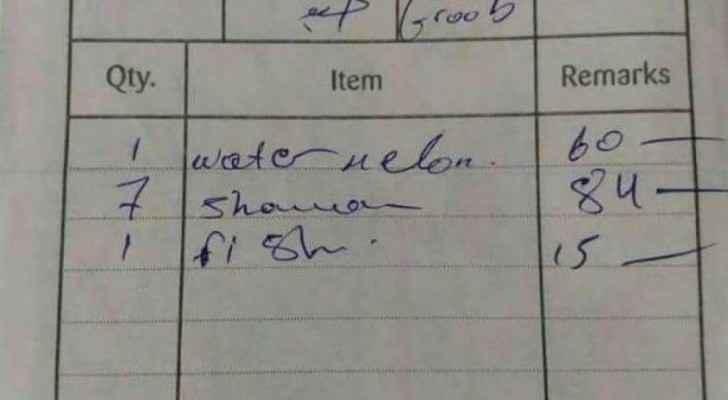 Groob
Qty. Item Remarks
1 water melon. 60
7 84
1 fish. 15